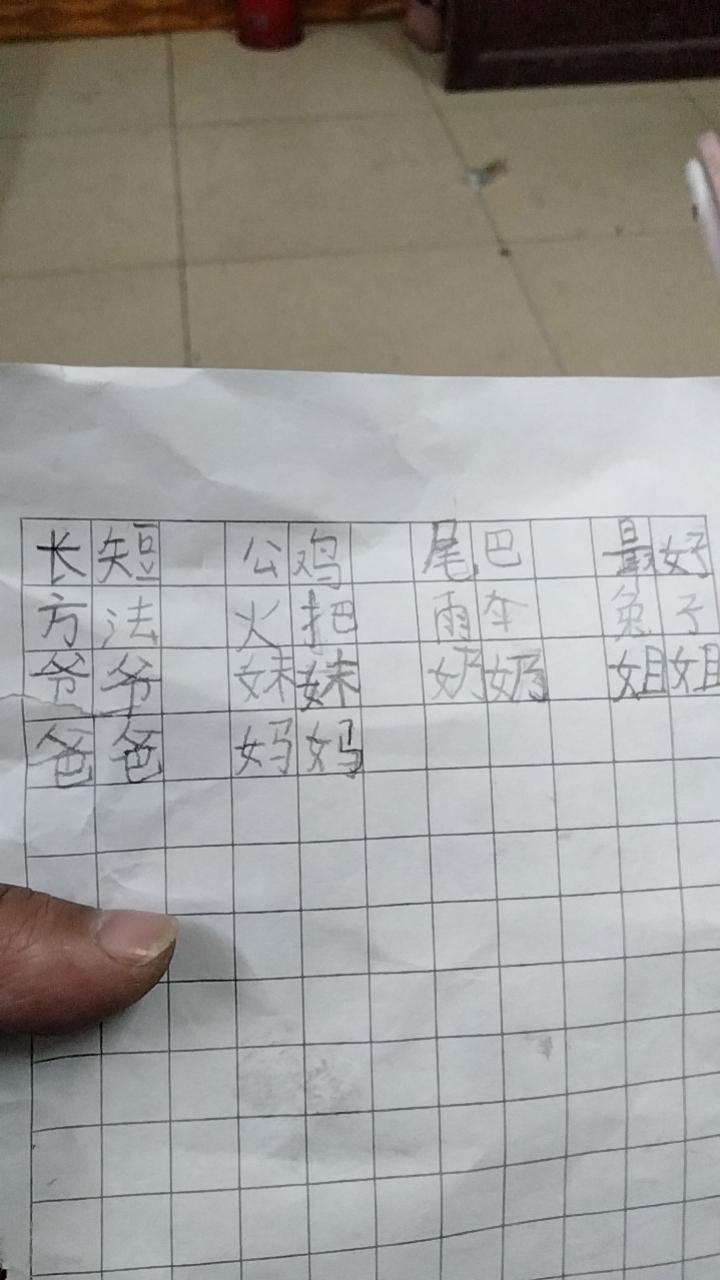 长短 公鸡 尾巴 最好
方法 火把 雨伞 兔子
爷爷 妹妹 奶奶 姐姐
爸爸 妈妈